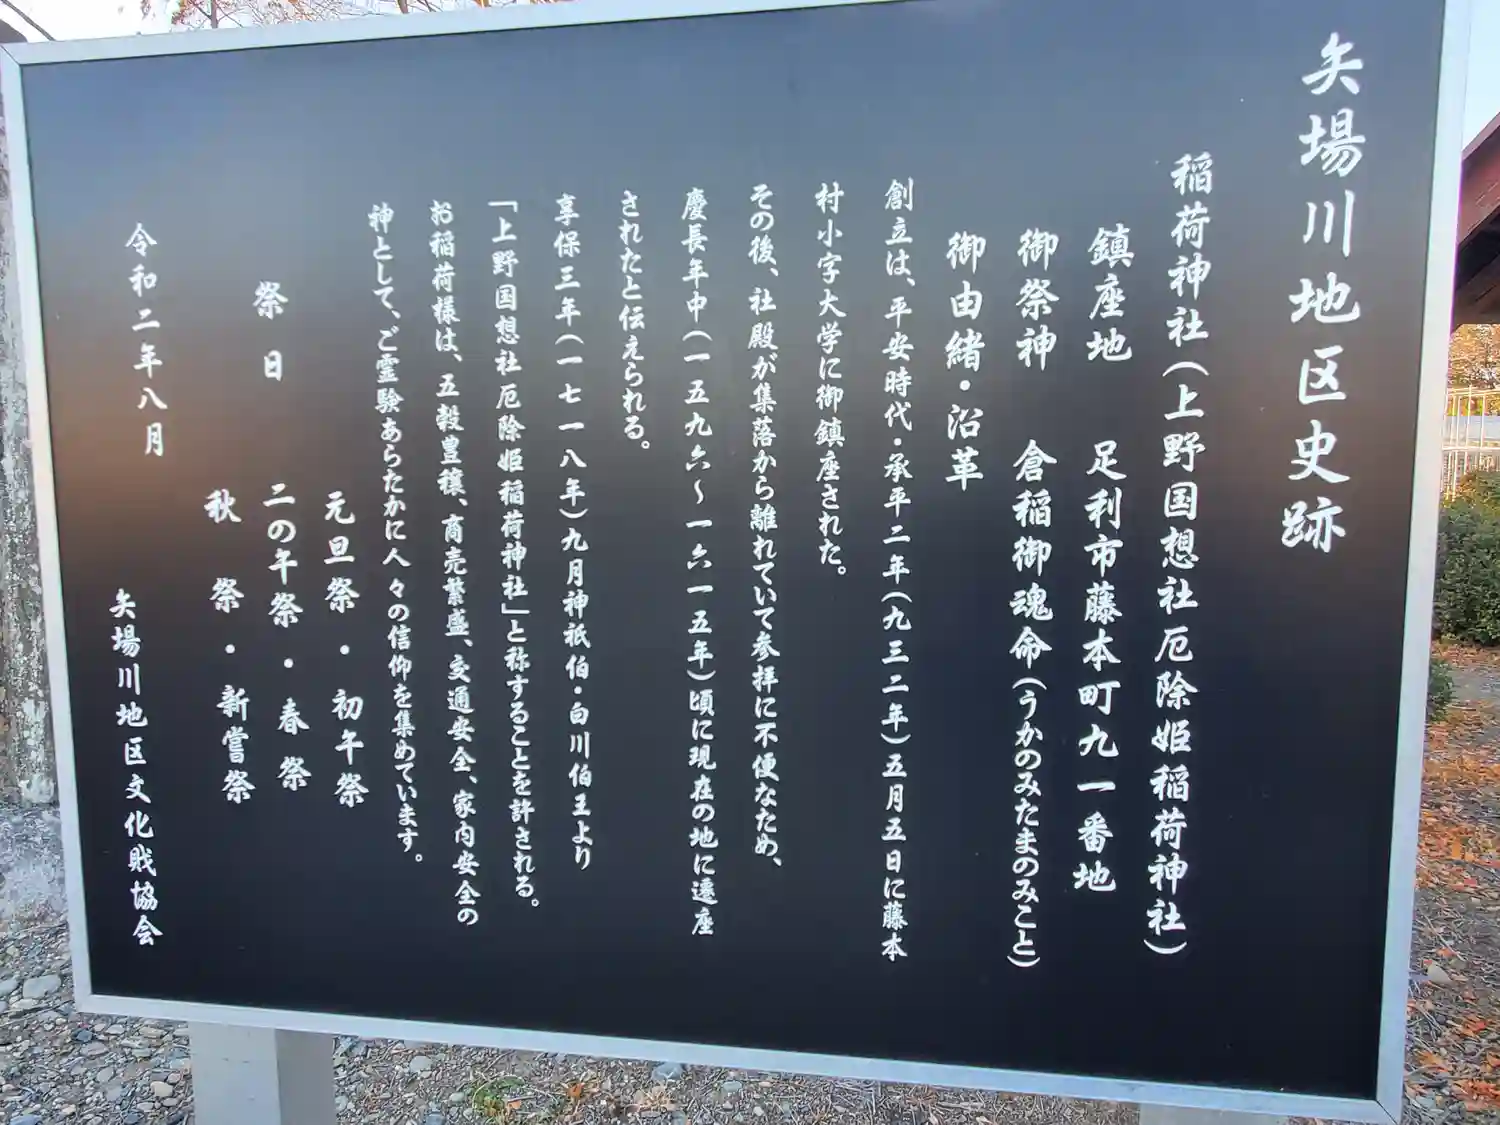 矢場川地区史跡
稲荷神社(上野国想社厄除姫稲荷神社)
鎮座地 足利市藤本町九一番地
御祭神 倉稲御魂命(うかのみたまのみこと)
御由緒・沿革
創立は、平安時代・承平二年(九三二年)五月五日に藤本
村小字大学に御鎮座された。
その後、社殿が集落から離れていて参拝に不便なため、
慶長年中(一五九六～一六一五年)頃に現在の地に遷座
されたと伝えられる。
享保三年(一七一八年)九月神祇伯・白川伯王より
「上野国想社厄除姫稲荷神社」と称することを許される。
お稲荷様は、五穀豊穣、商売繁盛、交通安全、家内安全の
神として、ご霊験あらたかに人々の信仰を集めています。
祭日
元旦祭・初午祭
二の午祭・春祭
秋祭・新嘗祭
令和二年八月
矢場川地区文化財協会